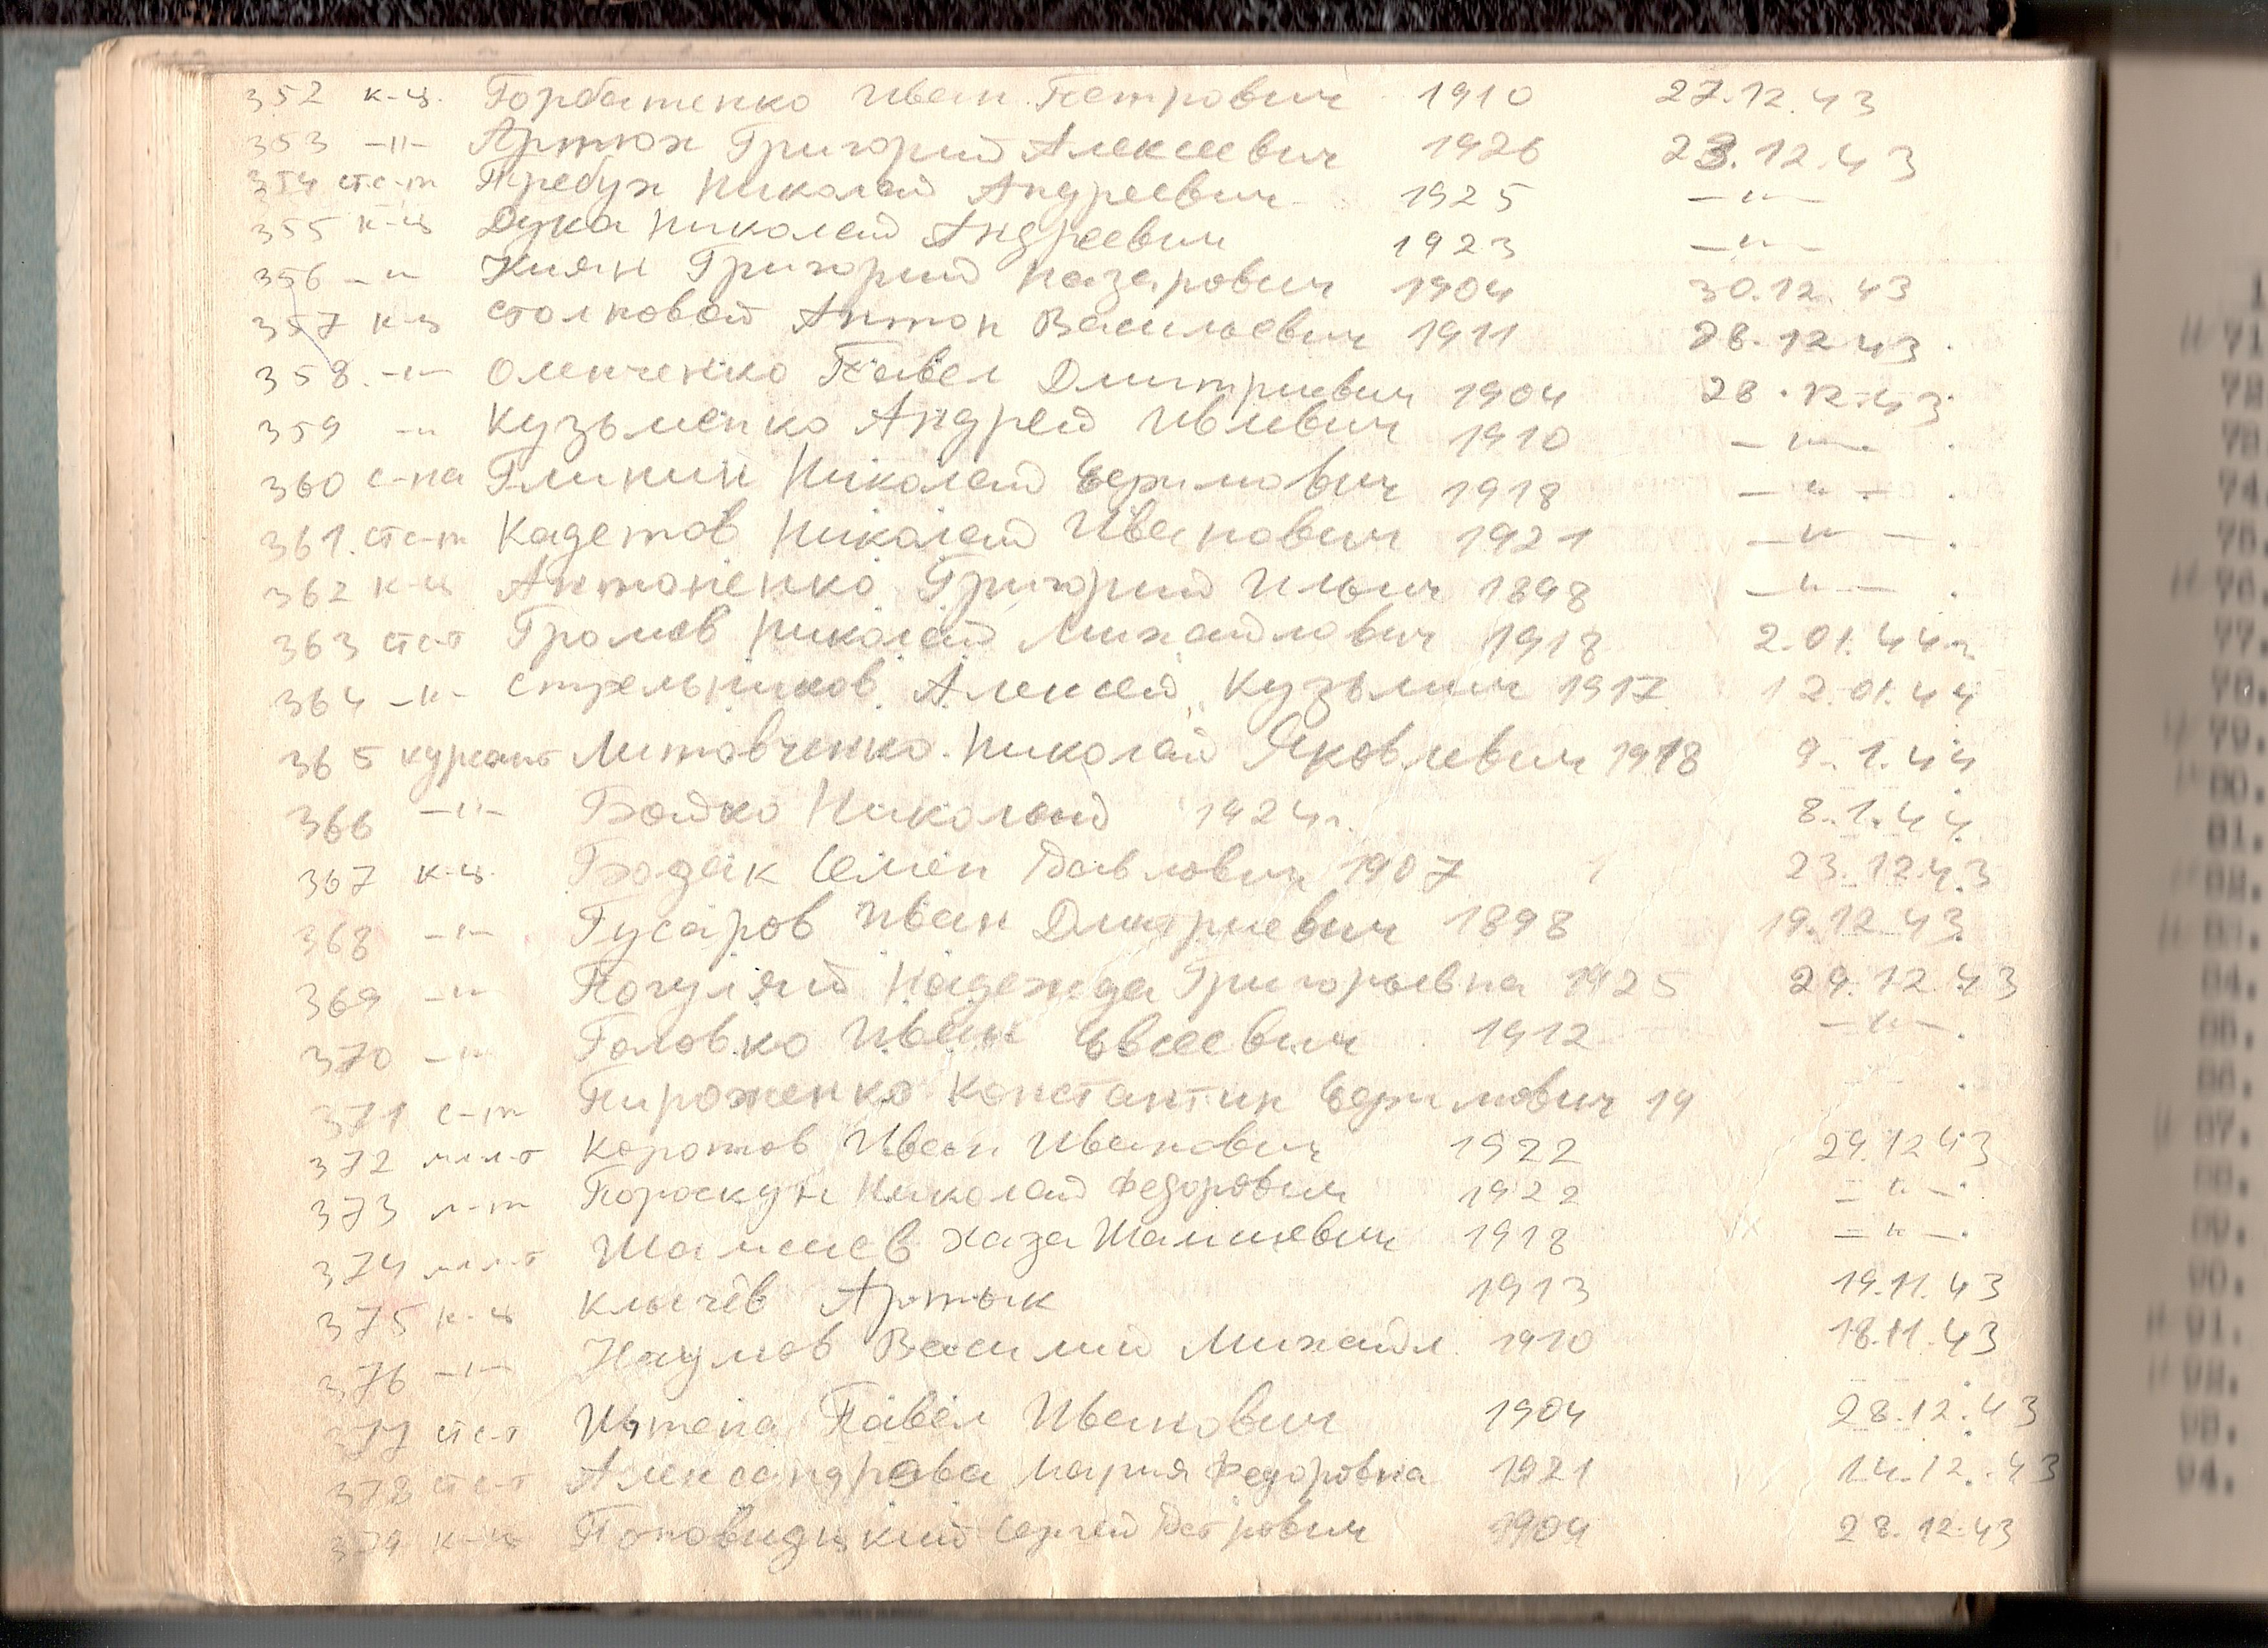 352 к-ц. Горбатенко Иван Петрович 1910 27.12.43
353 -"- Артюх Григорий Алексеевич 1926 23.12.43
354 ст.с-т Требух Николай Андреевич 1925 -"-
355 к-ц Дука Николай Андреевич 1923 -"-
356 -"- Киян Григорий Назарович 1904 30.12.43
357 к-ц Столповой Антон Васильевич 1911 28.12.43.
358. -"- Оленченко Павел Дмитриевич 1904 28.12.43.
359 -"- Кузьменко Андрей Ивлевич 1910 -"-.
360 с-на Глинин Николай Ефимович 1918 -"-.
361. ст с-т Кадетов Николай Иванович 1921 -"-.
362 к-ц Антоненко Григорий Ильич 1898 -"-.
363 ст с-т Громов Николай Михайлович 1918 2.01.44г.
364 -"- Стрельников Алексей Кузьмич 1917 12.01.44
365 курсант Литовченко Николай Яковлевич 1918 9.1.44
366 -"- Бойко Николай 1924г. 8.1.44
367 к-ц. Бодак Семен Павлович 1907 23.12.43
368 -"- Гусаров Иван Дмитриевич 1898 19.12.43
369 -"- Погуляй Надежда Григорьевна 1925 29.12.43
370 -"- Головко Иван Евсеевич 1912 -"-.
371 с-т Пироженко Константин Ефимович 19
372 мл л-т Коротов Иван Иванович 1922 29.12.43
373 л-т Пороскун Николай Федорович 1922 -"-.
374 мл л-т Шамсиев Хаза Шамиевич 1918 -"-.
375 к-ц Клычёв Артык 1913 19.11.43
376 -"- Наумов Василий Михайл. 1910 18.11.43
377 ст с-т Штепа Павел Иванович 1904 28.12.43
378 ст с-т Александрова Мария Федоровна 1921 14.12.43
379 к-ц Сергей Петрович 1904 28.12.43